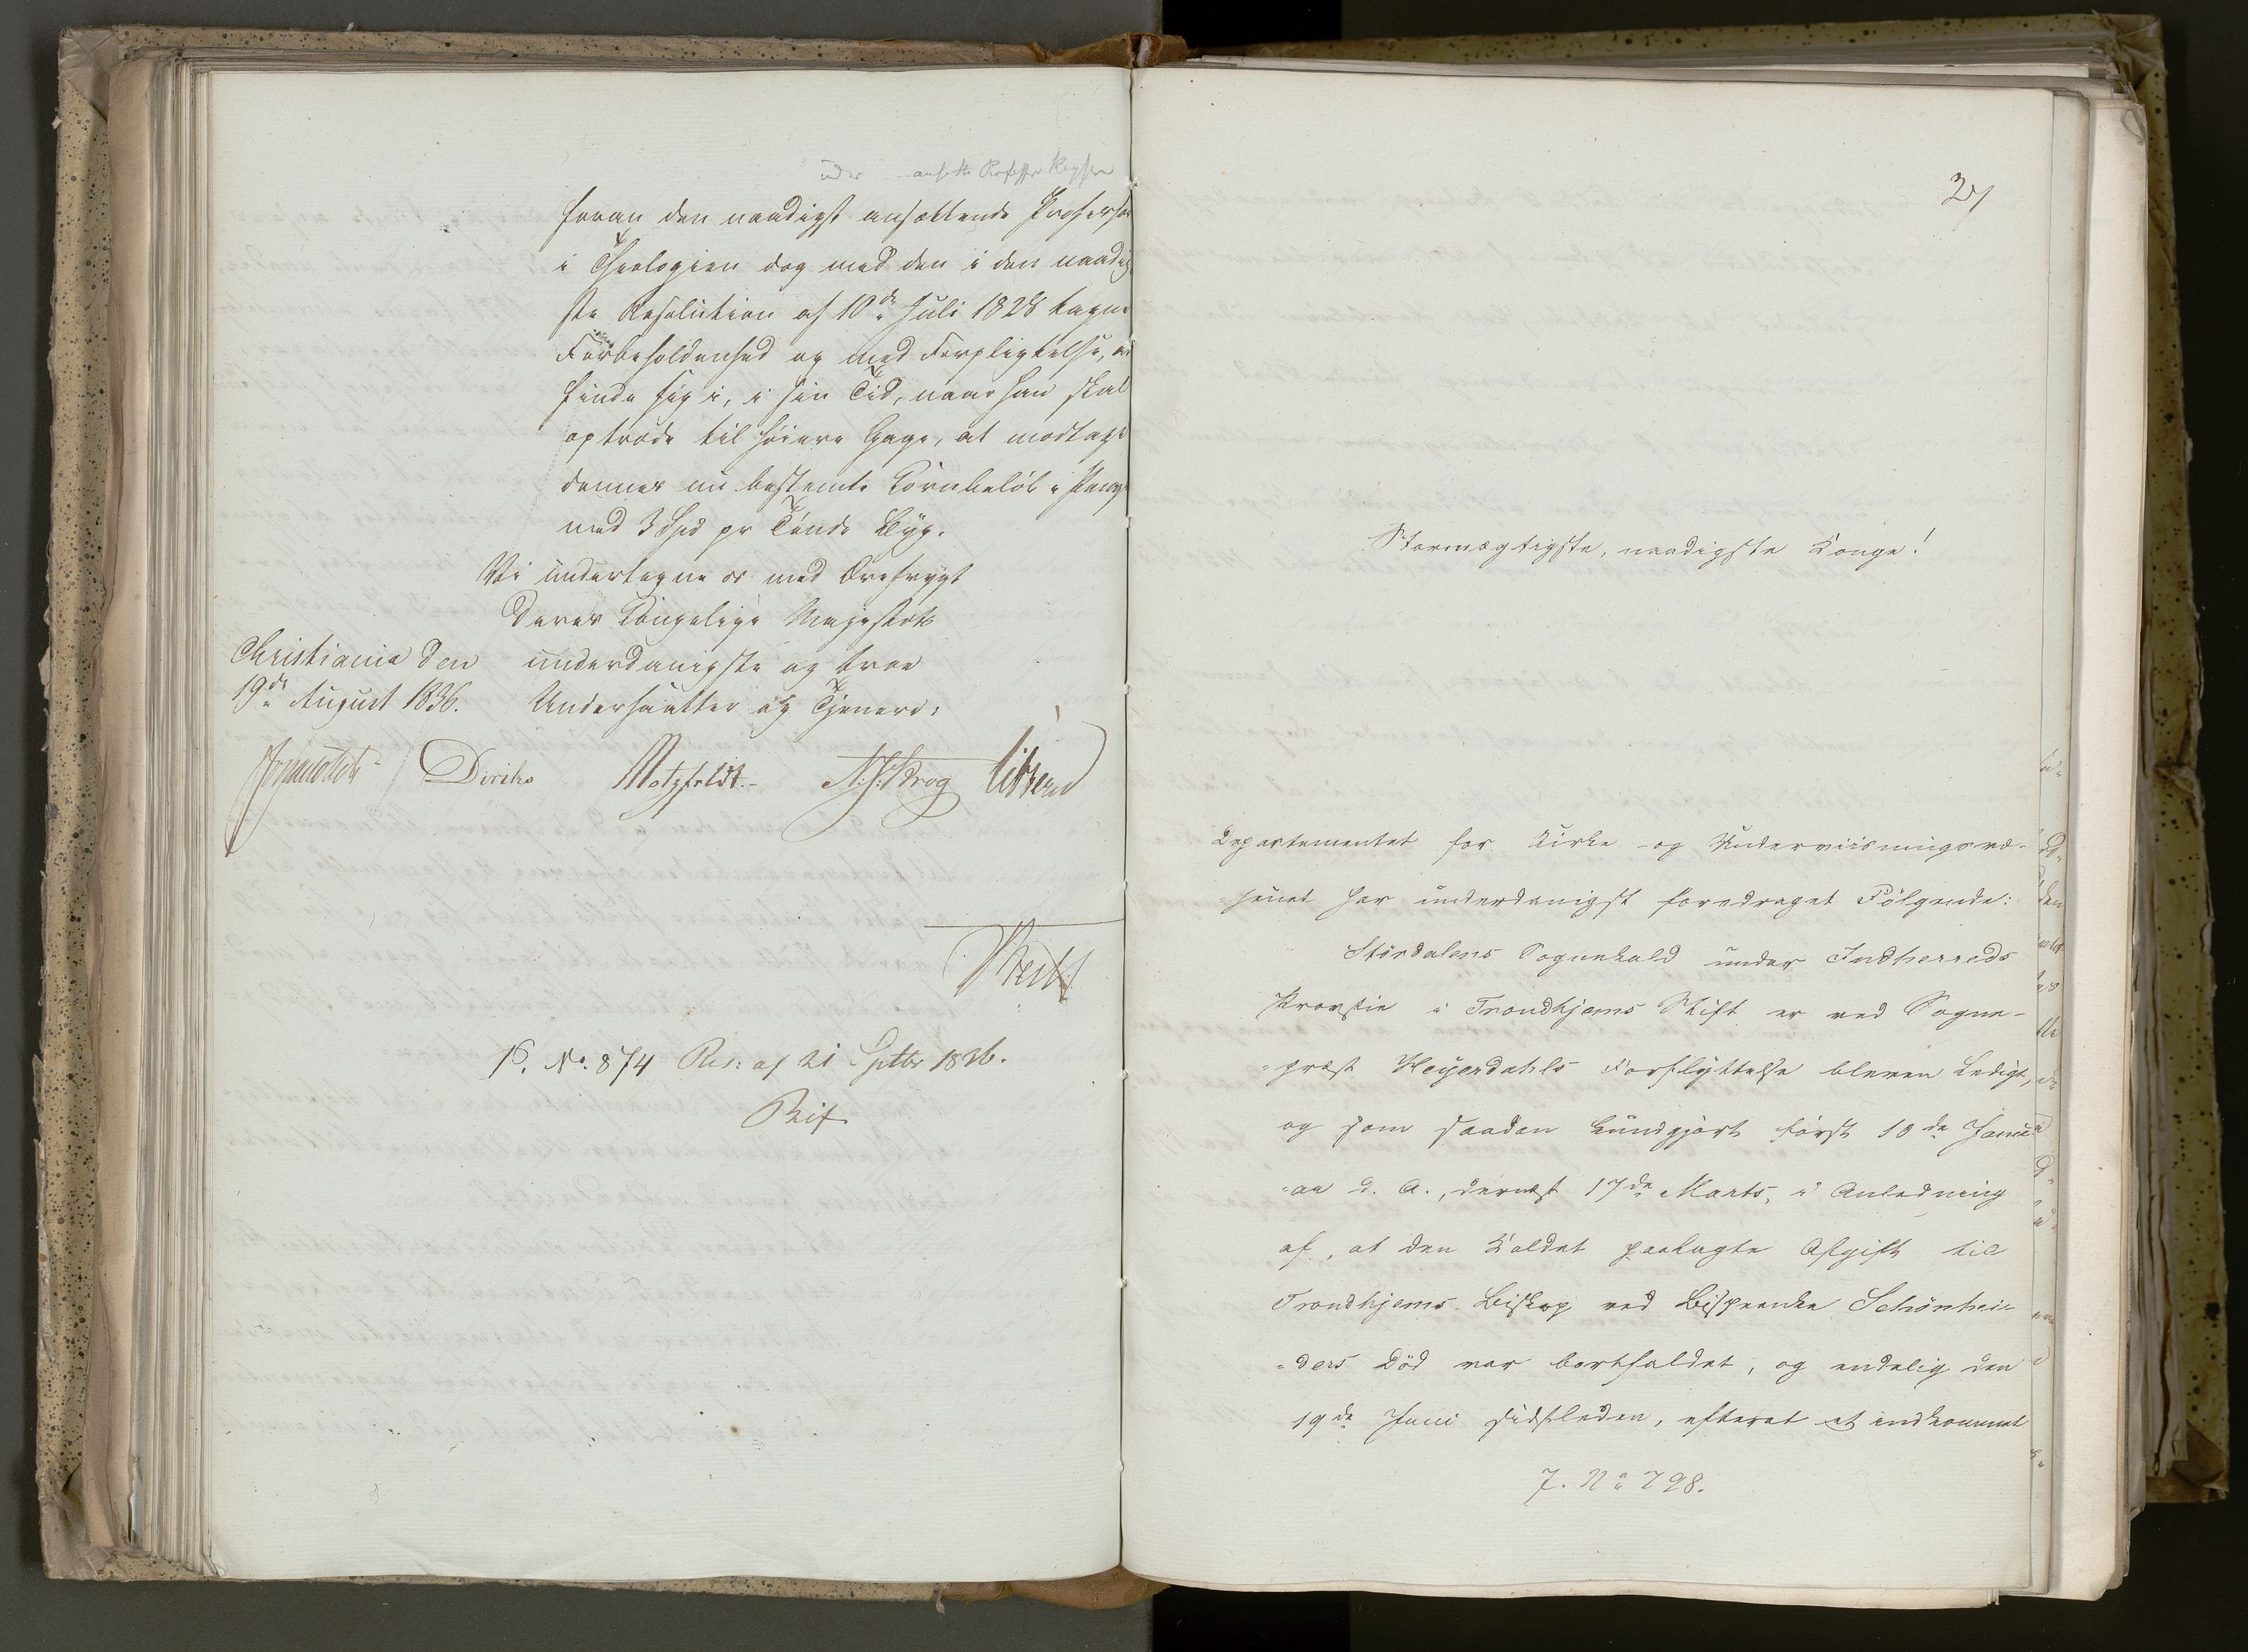 ansatte Professor Keyser
foran den naadigst ansættende Professor
i Theologien dog med den i den naadig
ste Resolution af 10de Juli 1828 tagne
Forbeholdenhed og med Forpligtelse, at
finde sig i, i sin Tid, naar han skal
optræde til høiere Gage, at modtage
dennes nu bestemte Kornbeløb i Penge
med 3 Spd pr Tønde Byg.
Vi undertegne os med Ærefrygt
Deres Kongelige Majestæts
Christiania den underdanigste og troe
19de August 1836. Undersaatter og Tjenere:
Diriks Motzfeldt. N. J. Krog
P. No. 874 Res: af 21 Septbr 1836.
Stormægtigste, naadigste Konge!
Departementet for Kirke- og Underviisningsvæ-
senet har underdanigst foredraget Følgende:
Størdalens Sognekald under Indherreds
Provstie i Trondhjems Stift er ved Sogne-
præst Heyerdahls Forflyttelse bleven ledigt,
og som saadan kundgjort først 10de Janu
ar d. A., dernæst 17de Marts, i Anledning
af, at den Kaldet paalagte Afgift til
Trondhjems Biskop ved Bispeenke Schönhei-
ders Død var bortfaldet, og endelig den
19de Juni sidstleden, efterat et indkommet
J. No 798.